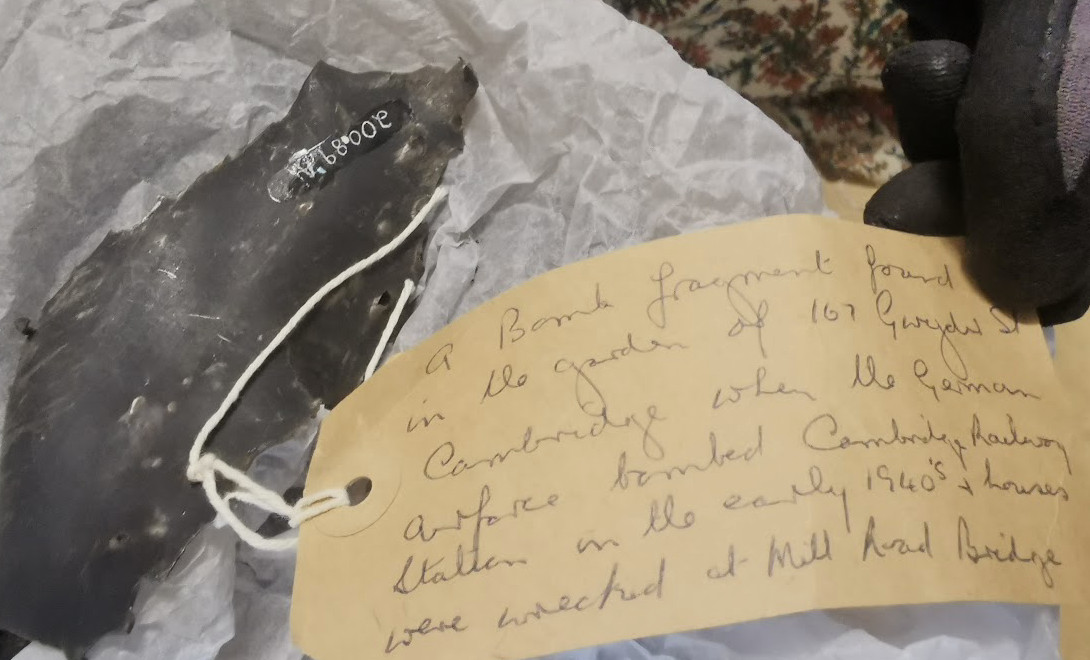 200.89
A Bomb fragment found
in the garden of 167 Gwydir St
Cambridge when the German
airforce bombed Cambridge Railway
Station in the early 1940's & houses
were wrecked at Mill Road Bridge